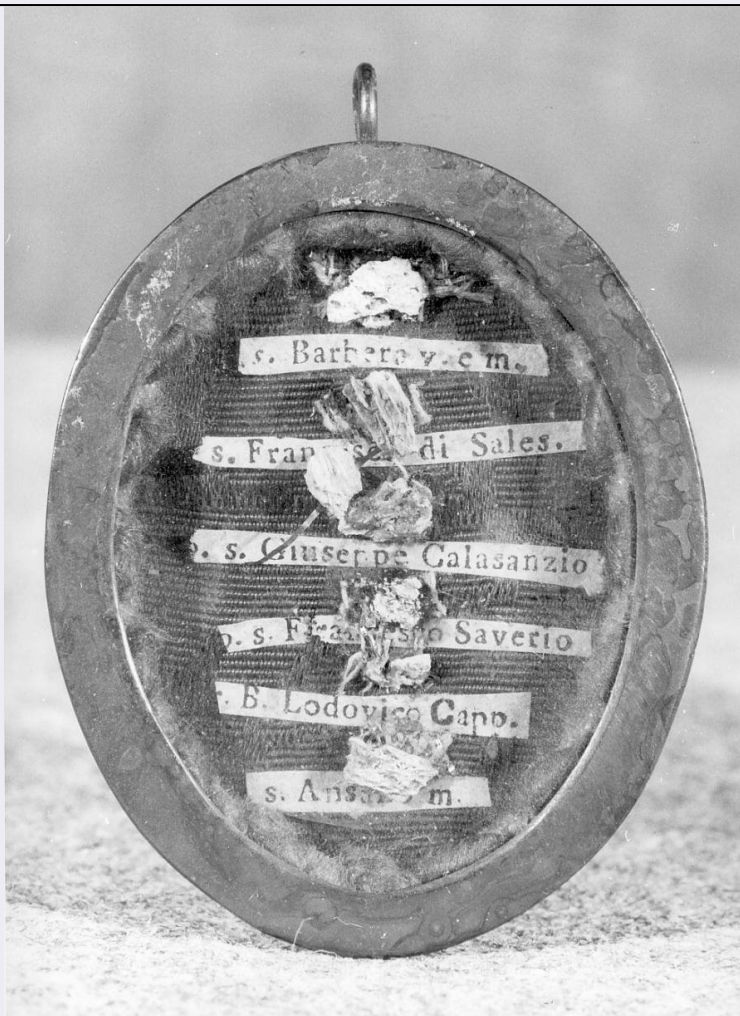 s. Barbera v. e m.
s. Francesco di Sales.
s. Giuseppe Calasanzio
s. Francesco Saverio
B. Lodovico Capp.
s. Ansano m.